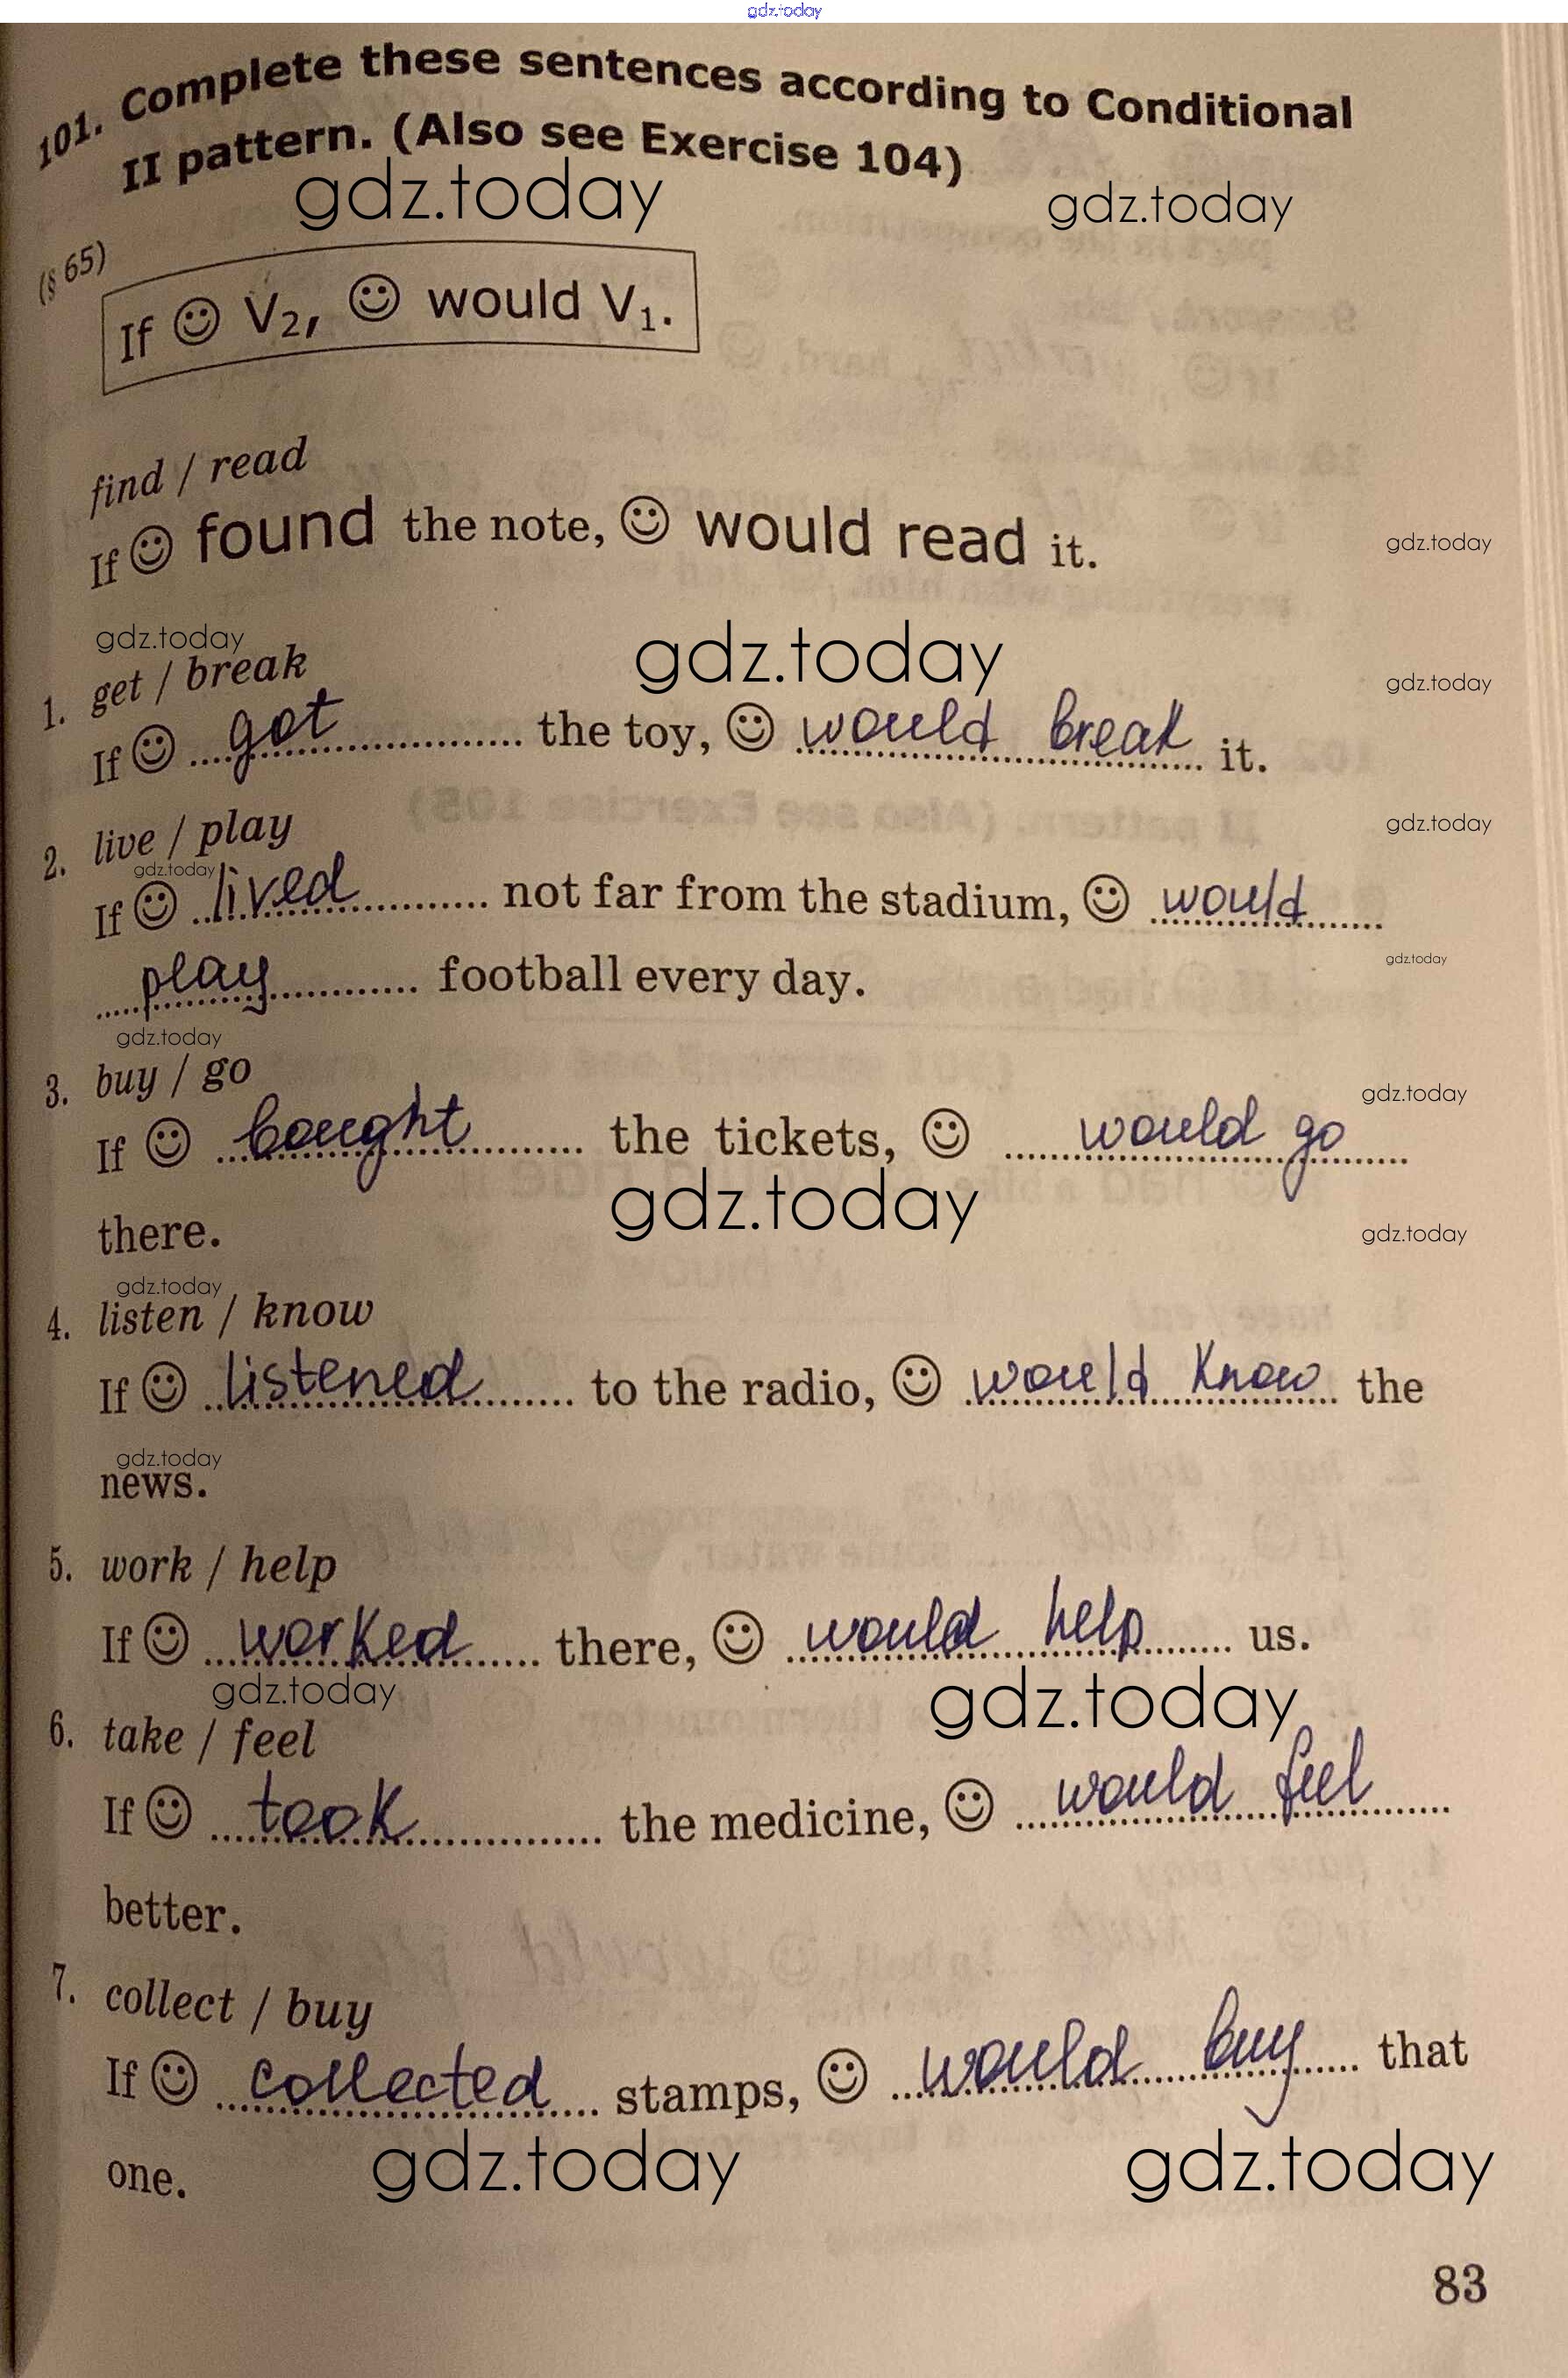 gdz.today
101. Complete these sentences according to Conditional
II pattern. (Also see Exercise 104)
gdz.today gdz.today
(§ 65)
If ☺ V₂, ☺ would V₁.
find / read
If ☺ found the note, ☺ would read it.
gdz.today
gdz.today gdz.today
gdz.today
1. get / break
If ☺ got the toy, ☺ would break it.
gdz.today
2. live / play
gdz.today
If ☺ lived not far from the stadium, ☺ would
play football every day.
gdz.today
gdz.today
3. buy / go
gdz.today
If ☺ bought the tickets, ☺ would go
gdz.today
there.
gdz.today
gdz.today
4. listen / know
If ☺ listened to the radio, ☺ would know the
gdz.today
news.
5. work / help
If ☺ worked there, ☺ would help us.
gdz.today gdz.today
6. take / feel
If ☺ took the medicine, ☺ would feel
better.
7. collect / buy
If ☺ collected stamps, ☺ would buy that
one.
gdz.today gdz.today
83